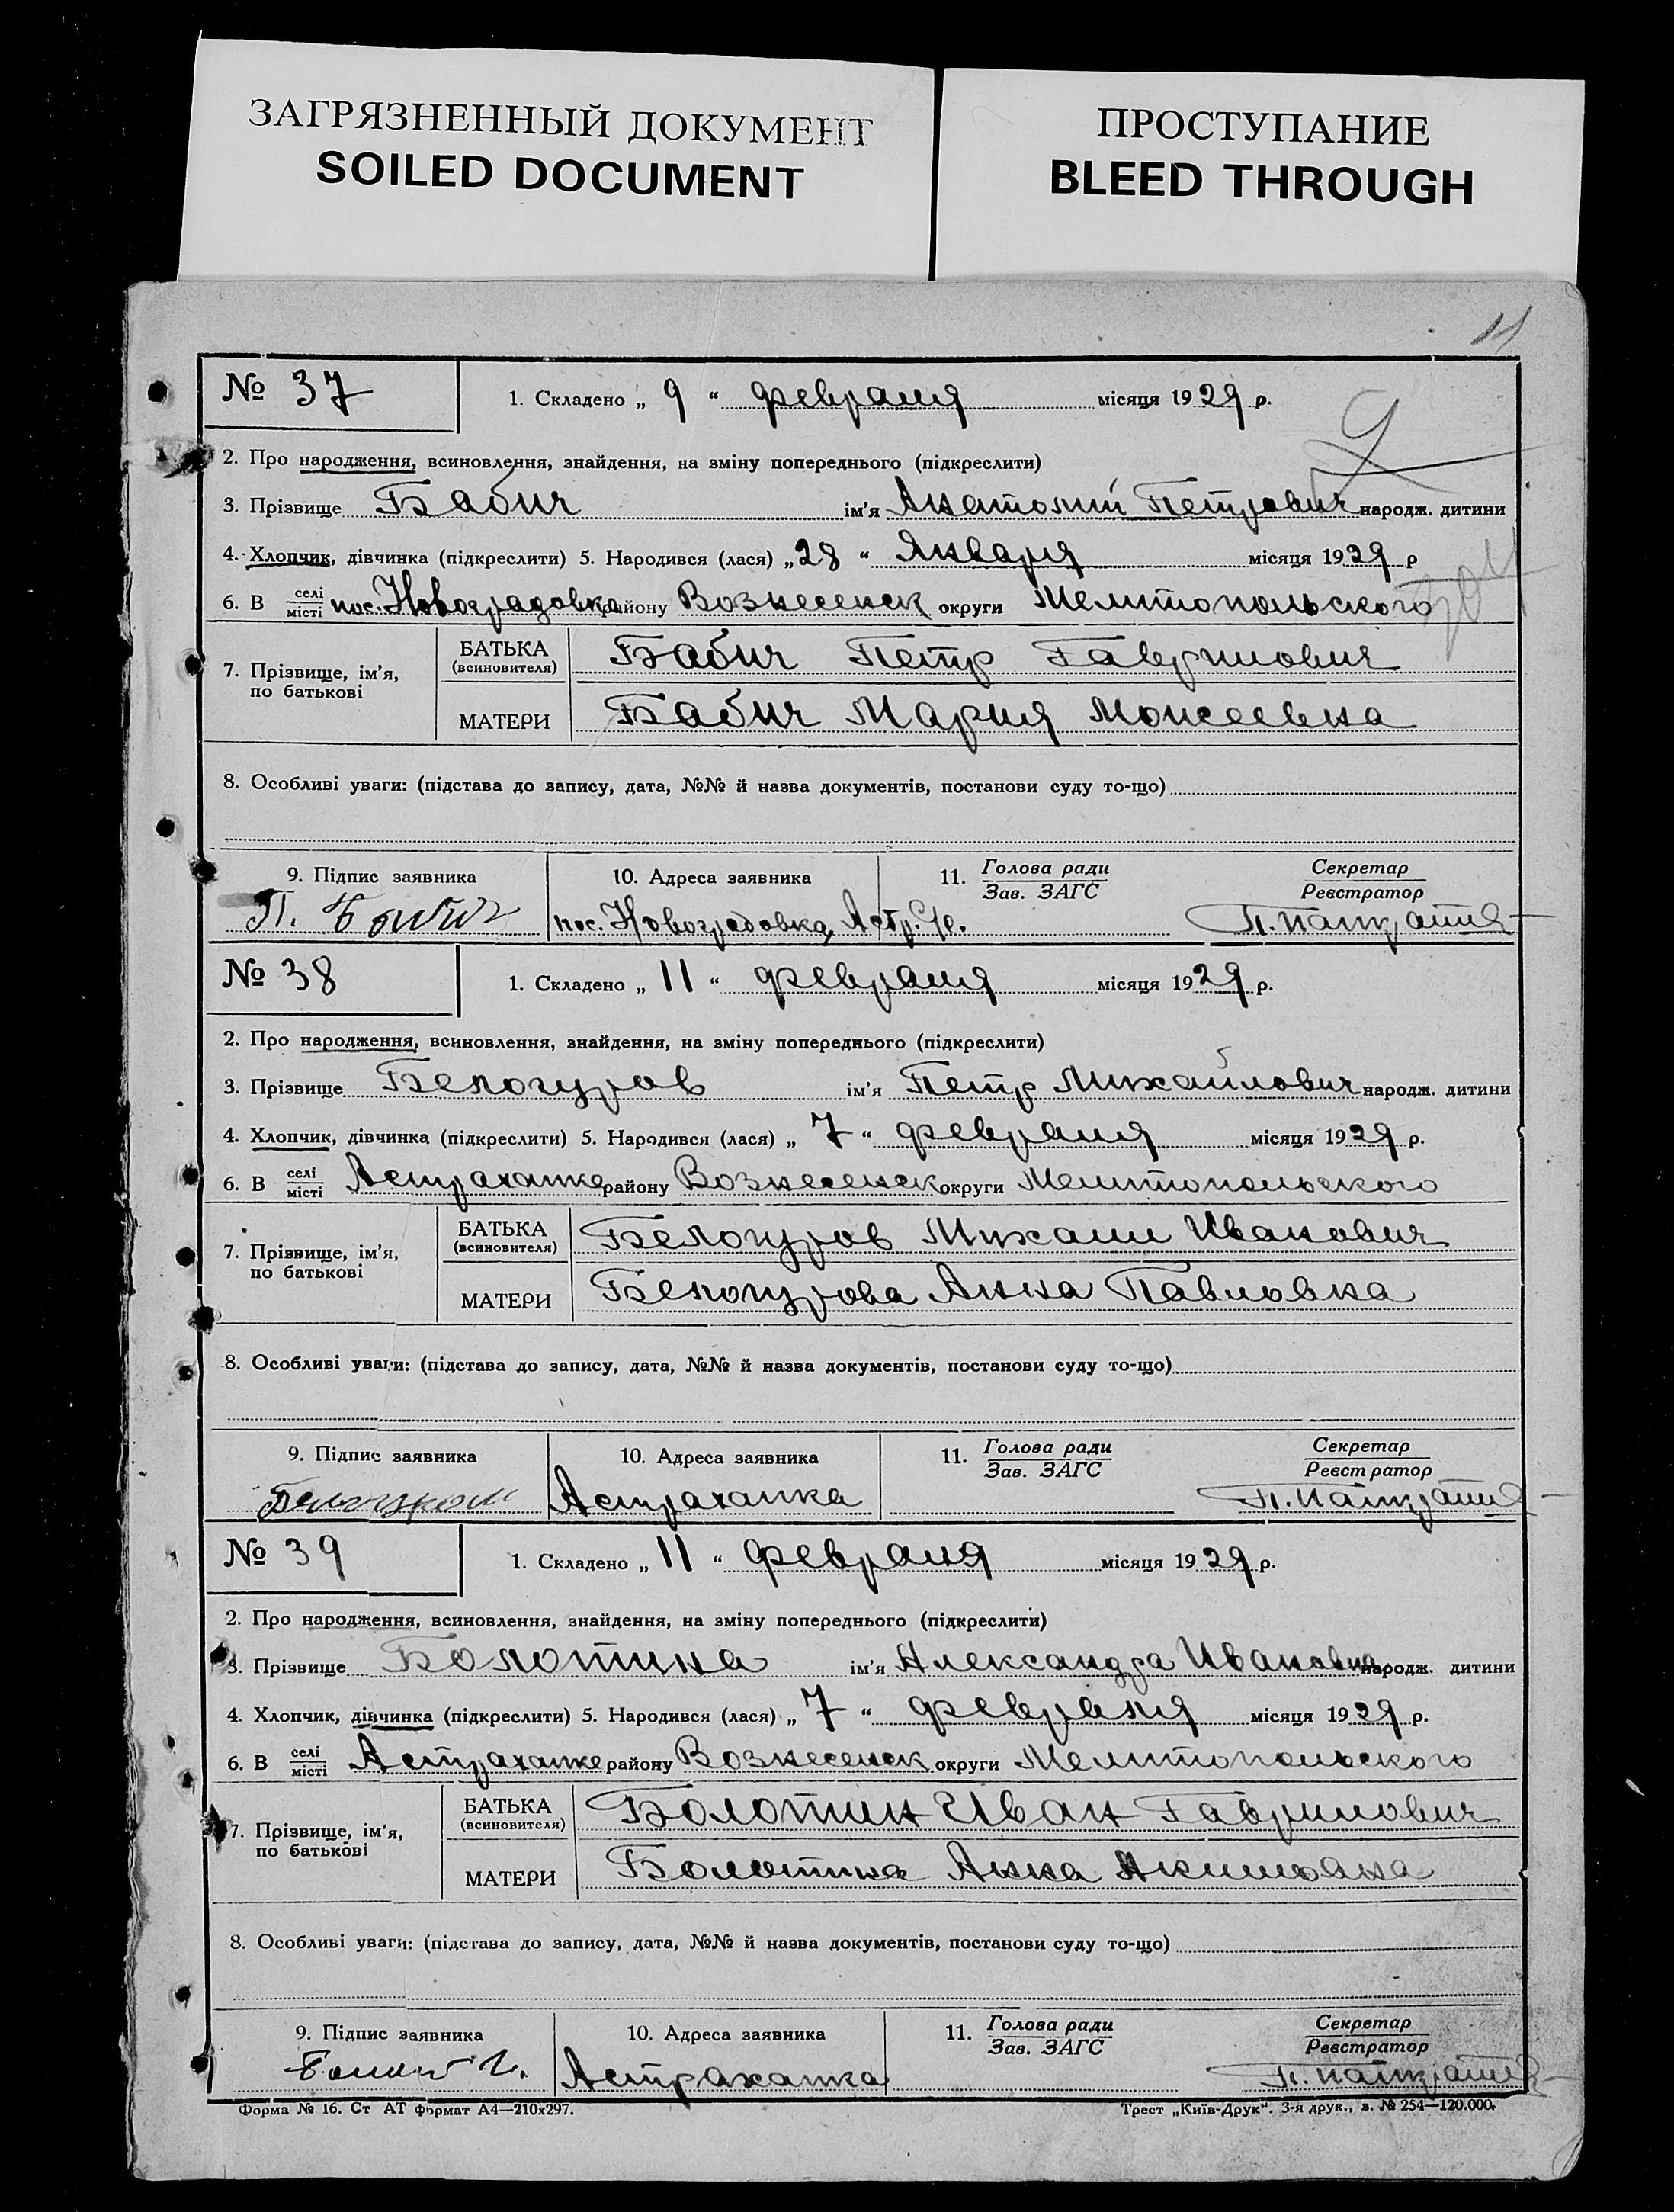 ЗАГРЯЗНЕННЫЙ ДОКУМЕНТ
SOILED DOCUMENT
ПРОСТУПАНИЕ
BLEED THROUGH
№ 37 1. Складено „ 9 “ февраля місяця 1929 р.
2. Про народження, всиновлення, знайдення, на зміну попереднього (підкреслити)
3. Прізвище Бабич ім'я Анатолий Петрович народж. дитини
4. Хлопчик, дівчинка (підкреслити) 5. Народився (лася) „28 “ Января місяця 1929 р
6. В селі місті пос. Новоградовка району Вознесенск округи Мелитопольского
7. Прізвище, ім'я, по батькові
БАТЬКА (всиновителя) Бабич Петр Гаврилович
МАТЕРИ Бабич Мария Моисеевна
8. Особливі уваги: (підстава до запису, дата, №№ й назва документів, постанови суду то-що)
9. Підпис заявника 10. Адреса заявника 11. Голова ради Зав. ЗАГС Секретар Реєстратор
П. Бабич пос. Новоградовка, Астр. С/с.
№ 38 1. Складено „ 11 “ февраля місяця 1929 р.
2. Про народження, всиновлення, знайдення, на зміну попереднього (підкреслити)
3. Прізвище Белогуров ім'я Петр Михайлович народж. дитини
4. Хлопчик, дівчинка (підкреслити) 5. Народився (лася) „ 7 “ февраля місяця 1929 р.
6. В селі місті Астраханке району Вознесенск округи Мелитопольского
7. Прізвище, ім'я, по батькові
БАТЬКА (всиновителя) Белогуров Михаил Иванович
МАТЕРИ Белогурова Анна Павловна
8. Особливі уваги: (підстава до запису, дата, №№ й назва документів, постанови суду то-що)
9. Підпис заявника 10. Адреса заявника 11. Голова ради Зав. ЗАГС Секретар Реєстратор
Астраханка
№ 39 1. Складено „ 11 “ февраля місяця 1929 р.
2. Про народження, всиновлення, знайдення, на зміну попереднього (підкреслити)
3. Прізвище Болотина ім'я Александра Ивановна народж. дитини
4. Хлопчик, дівчинка (підкреслити) 5. Народився (лася) „ 7 “ февраля місяця 1929 р.
6. В селі місті Астраханке району Вознесенск округи Мелитопольского
7. Прізвище, ім'я, по батькові
БАТЬКА (всиновителя) Болотин Иван Гаврилович
МАТЕРИ Болотина Анна Акимовна
8. Особливі уваги: (підстава до запису, дата, №№ й назва документів, постанови суду то-що)
9. Підпис заявника 10. Адреса заявника 11. Голова ради Зав. ЗАГС Секретар Реєстратор
Астраханка
Форма № 16. Ст АТ формат А4—210х297. Трест „Київ-Друк“. 3-я друк., з. № 254—120.000.